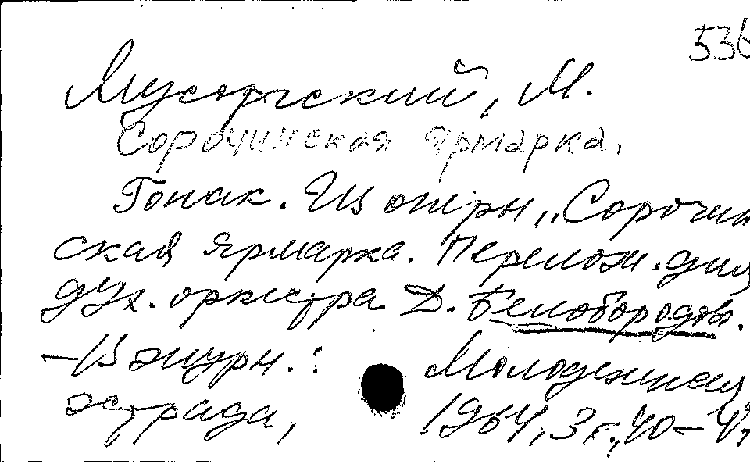 536
Мусоргский, М.
Сорочинская ярмарка.
Гопак. Из оперы „Сорочин
ская ярмарка. Перелож. для
дух. оркестра Д. Белобородов.
– В журн.: Молодежная
эстрада, 1964, 3 г., 40–